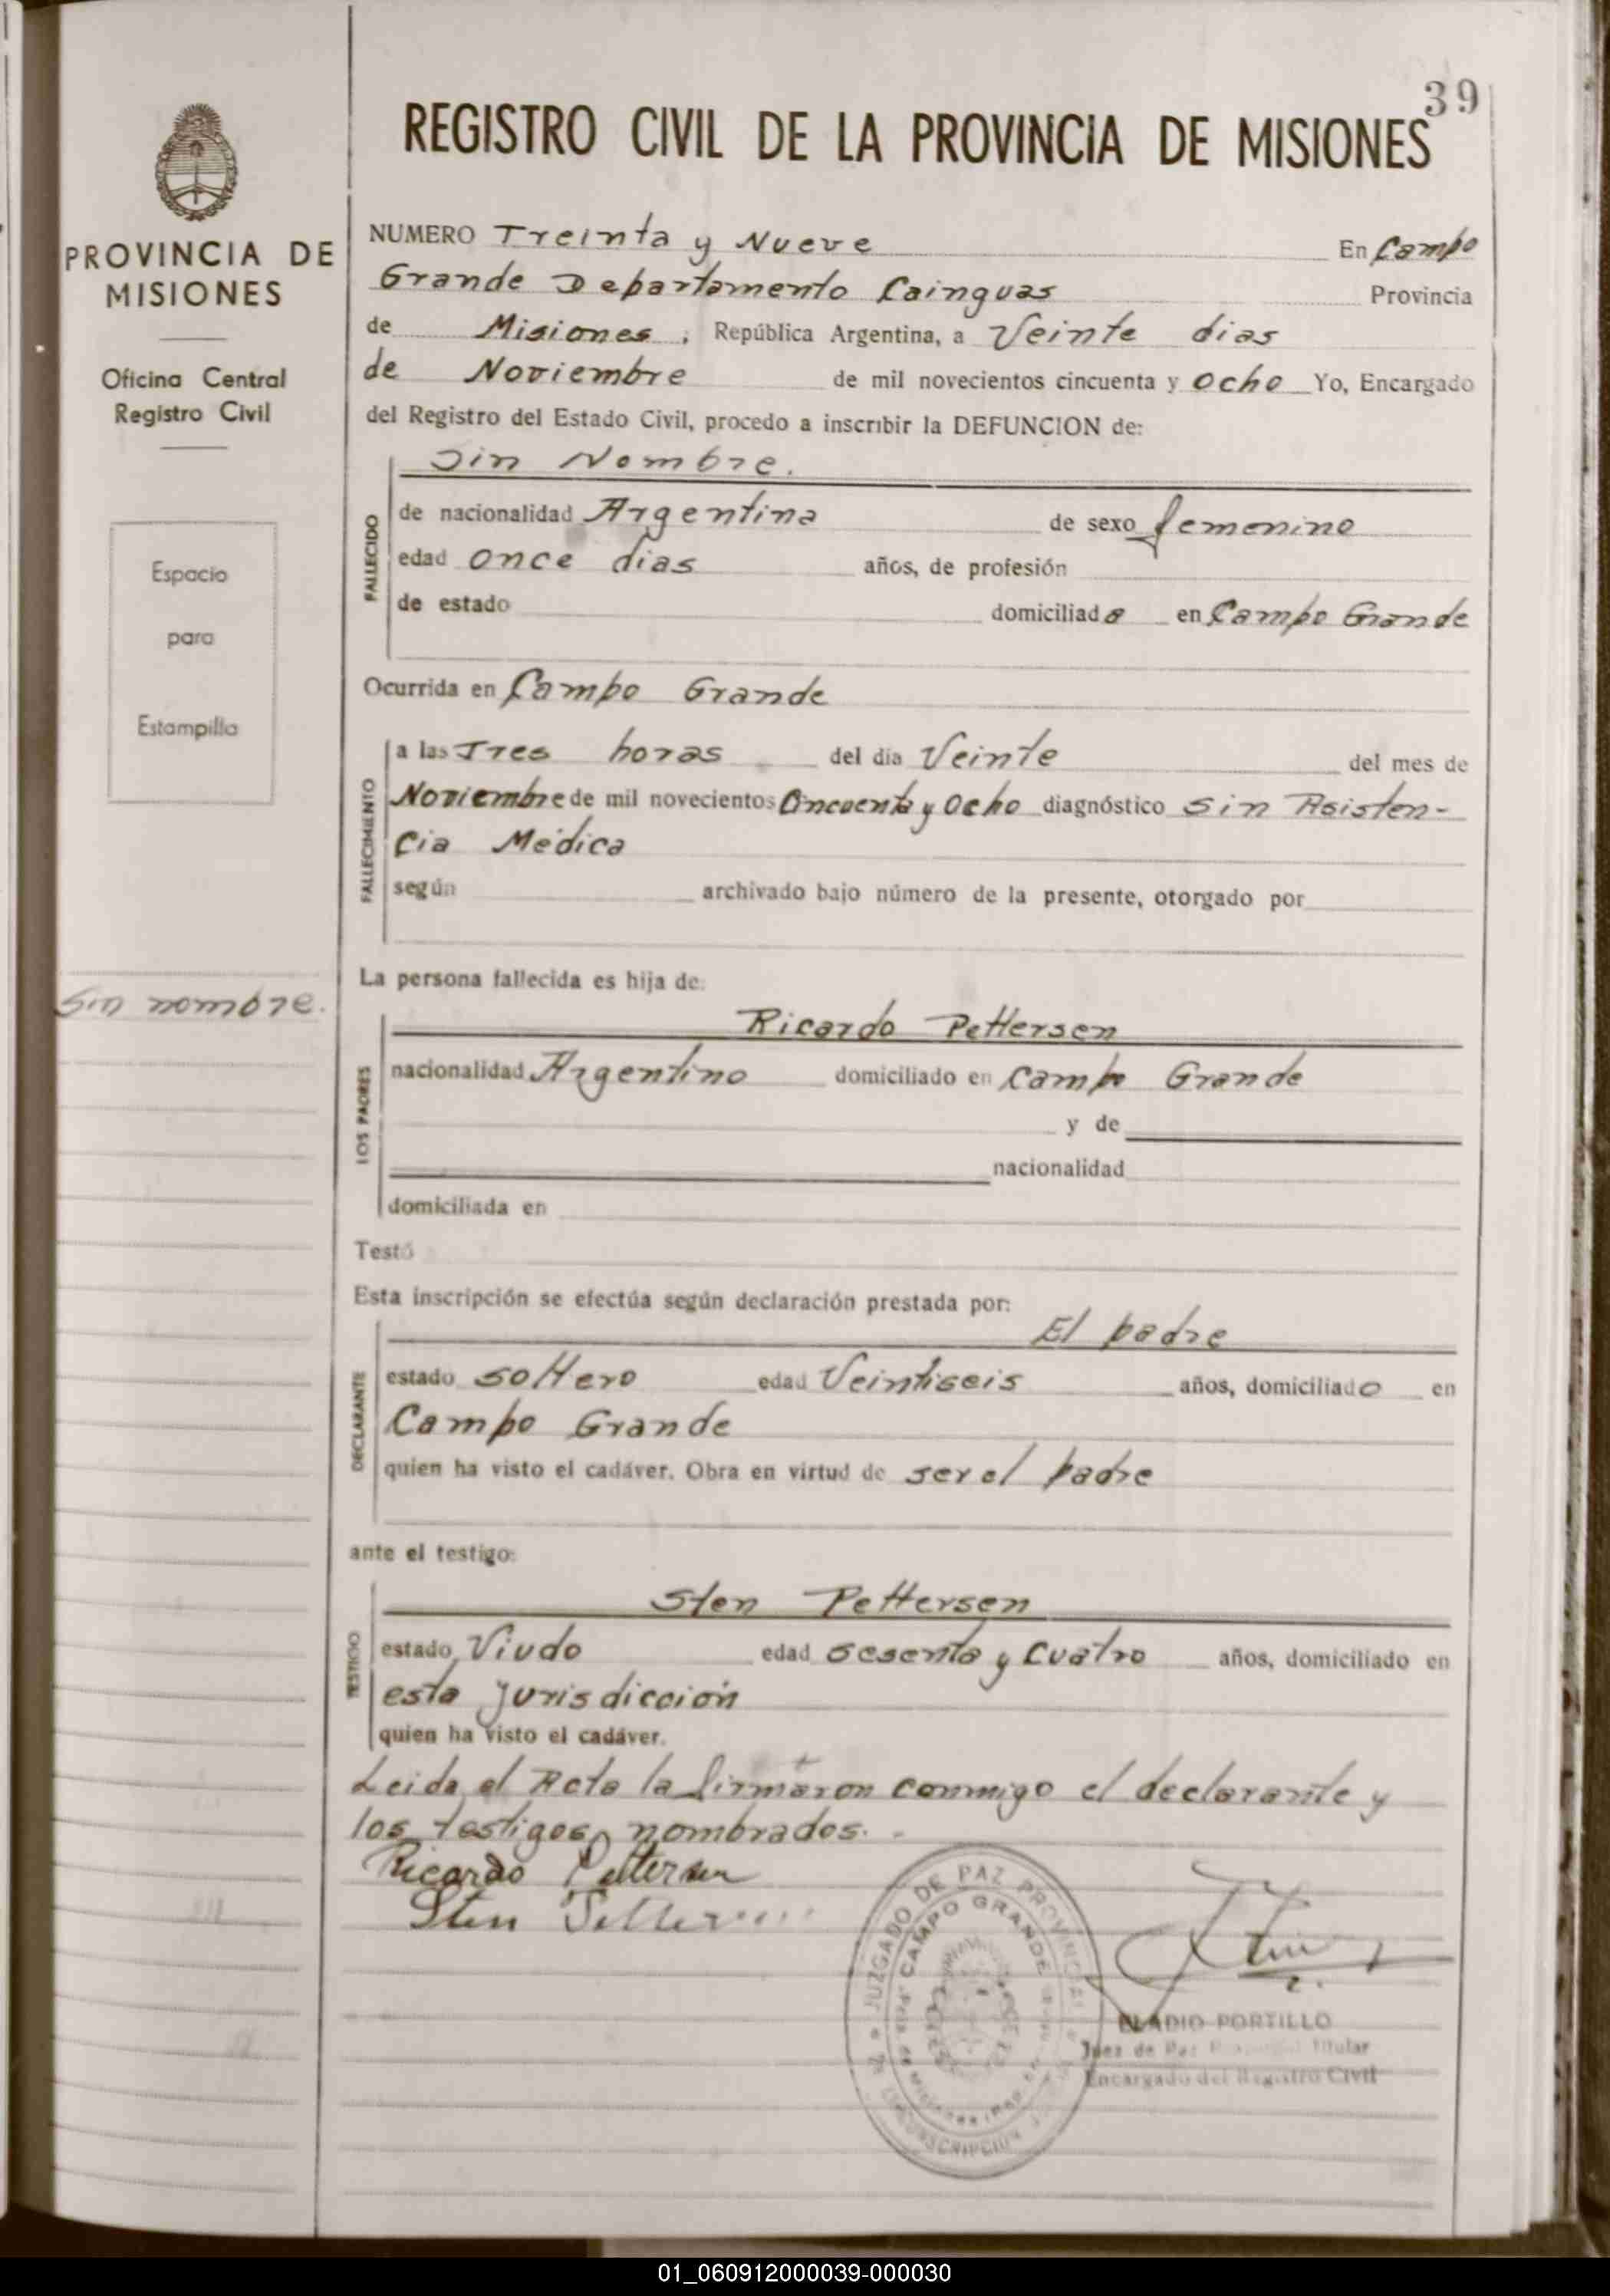 39
REGISTRO CIVIL DE LA PROVINCIA DE MISIONES
PROVINCIA DE
MISIONES
Oficina Central
Registro Civil
Espacio
para
Estampilla
Sin nombre.
NUMERO Treinta y Nueve En Campo
Grande Departamento Cainguas Provincia
de Misiones, República Argentina, a Veinte dias
de Noviembre de mil novecientos cincuenta y Ocho Yo, Encargado
del Registro del Estado Civil, procedo a inscribir la DEFUNCION de:
Sin Nombre.
FALLECIDO
de nacionalidad Argentina de sexo femenino
edad once dias años, de profesión
de estado domiciliada en Campo Grande
Ocurrida en Campo Grande
FALLECIMIENTO
a las Tres horas del día Veinte del mes de
Noviembre de mil novecientos Cincuenta y Ocho diagnóstico Sin Asisten-
cia Médica
según archivado bajo número de la presente, otorgado por
La persona fallecida es hija de:
LOS PADRES
Ricardo Pettersen
nacionalidad Argentino domiciliado en Campo Grande
y de
nacionalidad
domiciliada en
Testó
Esta inscripción se efectúa según declaración prestada por:
DECLARANTE
El padre
estado soltero edad Veintiseis años, domiciliado en
Campo Grande
quien ha visto el cadáver. Obra en virtud de ser el padre
ante el testigo:
TESTIGO
Sten Pettersen
estado Viudo edad sesenta y cuatro años, domiciliado en
esta jurisdicción
quien ha visto el cadáver.
Leida el Acta la firmaron conmigo el declarante y
los testigos nombrados.
Ricardo Pettersen
Sten Pettersen
JUZGADO DE PAZ PROVINCIAL
CAMPO GRANDE
CIRCUNSCRIPCION
ELADIO PORTILLO
Juez de Paz Titular
Encargado del Registro Civil
01_060912000039-000030